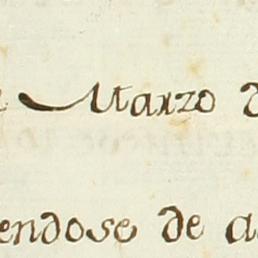 Marzo
endose de a